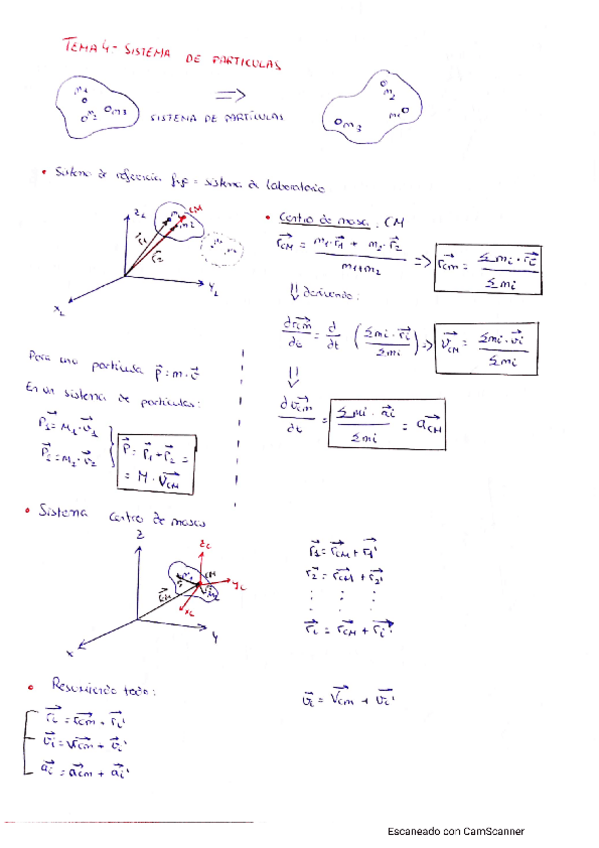 TEMA 4 - SISTEMA DE PARTICULAS
m1
m2
m3
=>
SISTEMA DE PARTÍCULAS
m2
m1
m3
• Sistema de referencia fijo = sistema de laboratorio
ZL
m1
CM
m2
r1
r2
YL
XL
• Centro de masa. CM
r⃗CM = (m1·r⃗1 + m2·r⃗2) / (m1+m2) => r⃗CM = Σmi·r⃗i / Σmi
⇓ derivando:
dr⃗CM/dt = d/dt (Σmi·r⃗i / Σmi) => v⃗CM = Σmi·v⃗i / Σmi
⇓
dv⃗CM/dt = Σmi·a⃗i / Σmi = a⃗CM
Para una partícula p⃗ = m·v⃗
En un sistema de partículas:
P⃗1 = M1·v⃗1
P⃗2 = m2·v⃗2
P⃗ = P⃗1 + P⃗2 =
= M·V⃗CM
• Sistema centro de masas
Z
ZC
CM
YC
XC
rCM
Y
X
r⃗1 = r⃗CM + r⃗1'
r⃗2 = r⃗CM + r⃗2'
: : :
r⃗i = r⃗CM + r⃗i'
• Resumiendo todo:
v⃗i = V⃗CM + v⃗i'
r⃗i = r⃗CM + r⃗i'
v⃗i = v⃗CM + v⃗i'
a⃗i = a⃗CM + a⃗i'
Escaneado con CamScanner